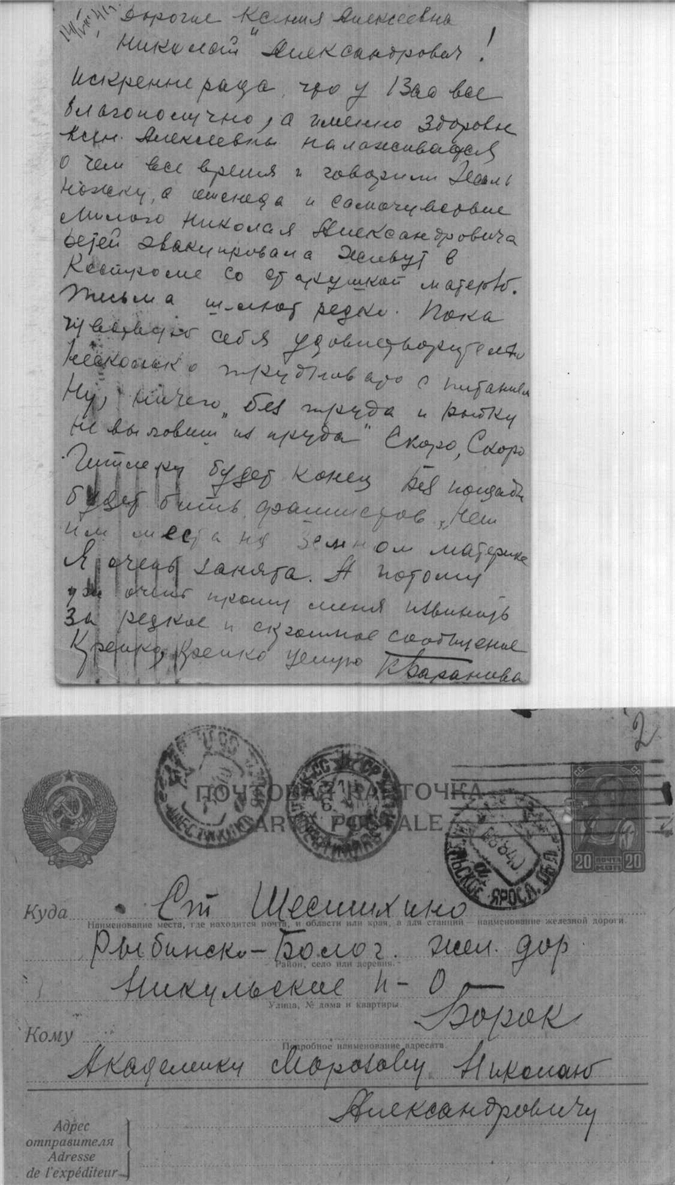 Дорогие Ксения Алексеевна
Николай Александрович!
Искренне рада, что у Вас все
благополучно, а именно здоровье
Ксен. Алексеевны налаживается
о чем все время и говорили
ножку, а отсюда и самочувствие
милого Николая Александровича
детей эвакуировала живут в
Костроме со старушкой матерью.
Письма шлют редко. Пока
чувствуют себя удовлетворительно
Несколько трудновато с питанием
Ну, ничего „Без труда и рыбку
не выловиш из пруда" Скоро, Скоро
Гитлеру будет конец Без пощады
будет бить фашистов „Нет
им места на земном материке
Я очень занята. А потому
уж очень прошу меня извинить
за редкое и скромное сообщение
Крепко, Крепко целую Баранова
2
ПОЧТОВАЯ КАРТОЧКА
CARTE POSTALE
20 20
Куда Ст Шестихино
Наименование места, где находится почта, и области или края, а для станций – наименование железной дороги.
Рыбинско-Болог. жел. дор
Район, село или деревня.
Никульское п-о
Улица, № дома и квартиры.
Борок
Кому
Подробное наименование адресата
Академику Морозову Николаю
Александровичу
Адрес
отправителя
Adresse
de l'expéditeur